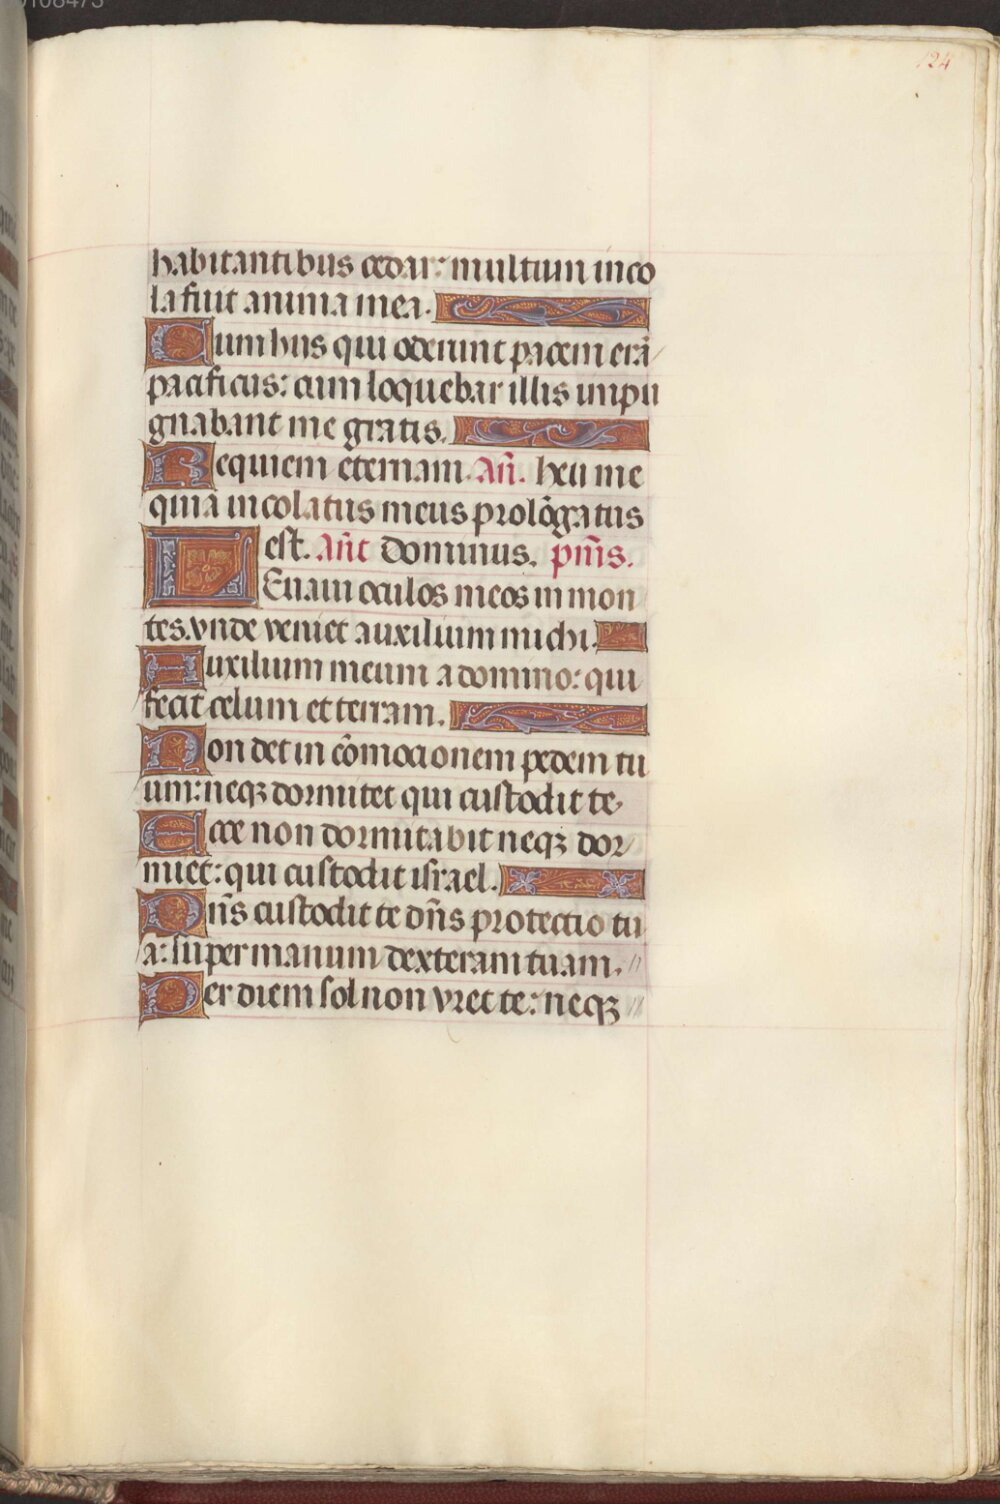 124
habitantibus cedar: multum inco
la fuit anima mea.
Cum hiis qui oderunt pacem erā
pacificus: cum loquebar illis inpu
gnabant me gratis.
Requiem eternam. Añ. heu me
quia incolatus meus prolōgatus
est. Añt dominus. pm̄s.
LEuaui oculos meos in mon
tes. vnde veniet auxilium michi.
Auxilium meum a domino: qui
fecit celum et terram.
Non det in cōmocionem pedem tu
um: neqꝫ dormitet qui custodit te.
Ecce non dormitabit neqꝫ dor
miet: qui custodit israel.
Dn̄s custodit te dn̄s protectio tu
a: super manum dexteram tuam.
Per diem sol non vret te: neqꝫ